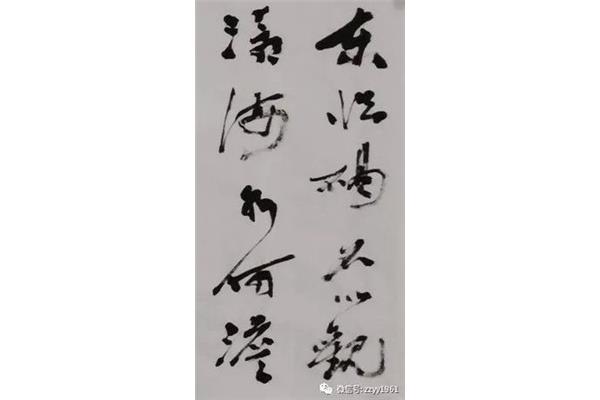 东临碣石以觀
滄海水何澹
微信号: zzyy1961